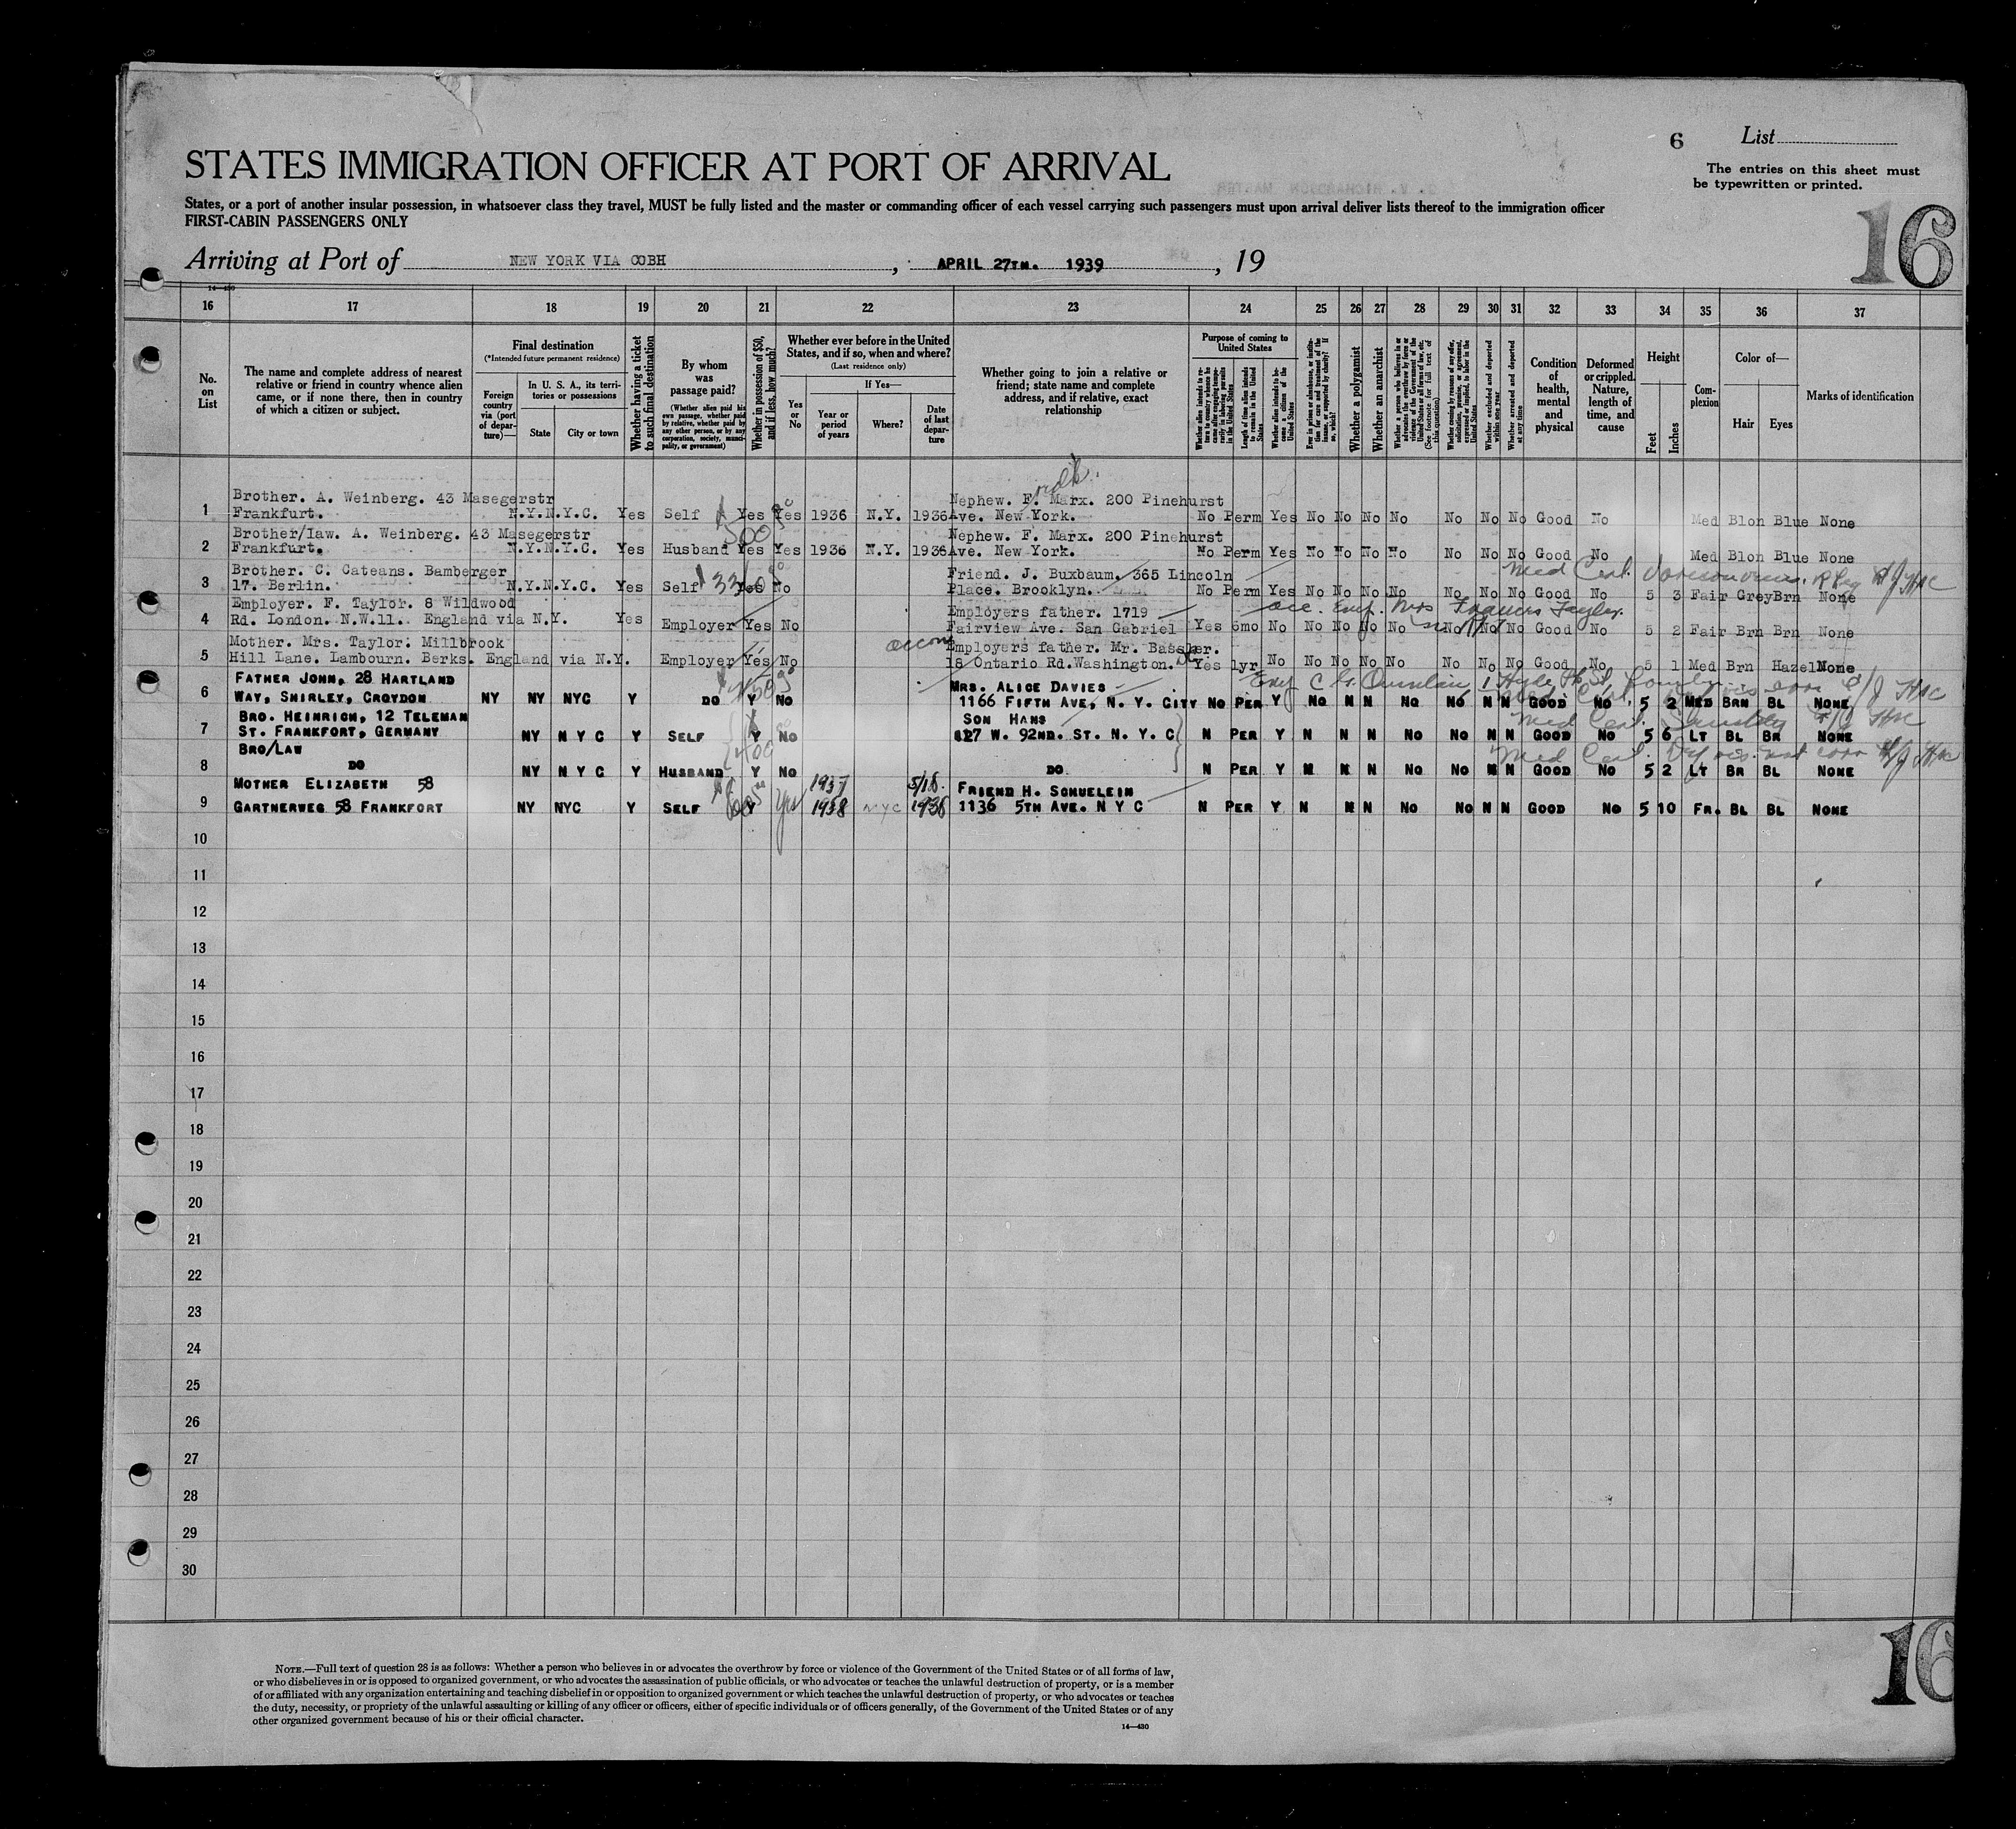 6 List
The entries on this sheet must
be typewritten or printed.
STATES IMMIGRATION OFFICER AT PORT OF ARRIVAL
States, or a port of another insular possession, in whatsoever class they travel, MUST be fully listed and the master or commanding officer of each vessel carrying such passengers must upon arrival deliver lists thereof to the immigration officer
FIRST-CABIN PASSENGERS ONLY
16
Arriving at Port of NEW YORK VIA COBH , APRIL 27TH. 1939 , 19
14—430
16 17 18 19 20 21 22 23 24 25 26 27 28 29 30 31 32 33 34 35 36 37
No. on List
The name and complete address of nearest relative or friend in country whence alien came, or if none there, then in country of which a citizen or subject.
Final destination
(*Intended future permanent residence)
Foreign country via (port of departure)—
In U. S. A., its territories or possessions
State City or town
Whether having a ticket to such final destination
By whom was passage paid?
(Whether alien paid his own passage, whether paid by relative, whether paid by any other person, or by any corporation, society, municipality, or government)
Whether in possession of $50, and if less, how much?
Whether ever before in the United States, and if so, when and where?
(Last residence only)
Yes or No
If Yes—
Year or period of years
Where?
Date of last departure
Whether going to join a relative or friend; state name and complete address, and if relative, exact relationship
Purpose of coming to United States
Whether alien intends to return to country whence he came after engaging temporarily in laboring pursuits in the United States
Length of time alien intends to remain in the United States
Whether alien intends to become a citizen of the United States
Ever in prison or almshouse, or institution for care and treatment of the insane, or supported by charity? If so, which?
Whether a polygamist
Whether an anarchist
Whether a person who believes in or advocates the overthrow by force or violence of the Government of the United States or all forms of law, etc. (See footnote for full text of this question)
Whether coming by reasons of any offer, solicitation, promise, or agreement, expressed or implied, to labor in the United States
Whether excluded and deported within one year
Whether arrested and deported at any time
Condition of health, mental and physical
Deformed or crippled. Nature, length of time, and cause
Height
Feet Inches
Complexion
Color of—
Hair Eyes
Marks of identification
Brother. A. Weinberg. 43 Masegerstr Nephew. F. Marx. 200 Pinehurst
1 Frankfurt. N.Y.N.Y.C. Yes Self Yes Yes 1936 N.Y. 1936 Ave. New York. No Perm Yes No No No No No No No Good No Med Blon Blue None
500
Brother/law. A. Weinberg. 43 Masegerstr Nephew. F. Marx. 200 Pinehurst
2 Frankfurt. N.Y.N.Y.C. Yes Husband Yes Yes 1936 N.Y. 1936 Ave. New York. No Perm Yes No No No No No No No Good No Med Blon Blue None
Brother. C. Cateans. Bamberger Friend. J. Buxbaum. 365 Lincoln Med Cert.
3 17. Berlin. N.Y.N.Y.C. Yes Self Yes No Place. Brooklyn. No Perm Yes No No No No No No No Good No 5 3 Fair Grey Brn None
Employer. F. Taylor. 8 Wildwood Employers father. 1719 acc. emp. Mrs Frances Taylor.
4 Rd. London. N.W.11. England via N.Y. Yes Employer Yes No Fairview Ave. San Gabriel Yes 6mo No No No No No No No No Good No 5 2 Fair Brn Brn None
Mother. Mrs. Taylor. Millbrook Employers father. Mr. Bassker.
5 Hill Lane. Lambourn. Berks. England via N.Y. Employer Yes No 18 Ontario Rd. Washington. Yes 1yr No No No No No No No No Good No 5 1 Med Brn Hazel None
FATHER JOHN, 28 HARTLAND MRS. ALICE DAVIES
6 WAY, SHIRLEY, CROYDON NY NY NYC Y DO Y NO 1166 FIFTH AVE, N. Y. CITY NO PER Y NO N N NO NO N N GOOD NO 5 2 MED BRN BL NONE
BRO. HEINRICH, 12 TELEMAN SON HANS Med Cert.
7 ST. FRANKFORT, GERMANY NY N Y C Y SELF Y NO 127 W. 92ND. ST. N. Y. C N PER Y N N N NO NO N N GOOD NO 5 6 LT BL BR NONE
400
BRO/LAW Med Cert.
8 DO NY N Y C Y HUSBAND Y NO DO N PER Y N N N NO NO N N GOOD NO 5 2 LT BR BL NONE
MOTHER ELIZABETH 58 1937 5/18. FRIEND H. SCHUELEIN
9 GARTNERWEG 58 FRANKFORT NY NYC Y SELF Y Yes 1938 NYC 1938 1136 5TH AVE. N Y C N PER Y N N N NO NO N N GOOD NO 5 10 FR. BL BL NONE
10
11
12
13
14
15
16
17
18
19
20
21
22
23
24
25
26
27
28
29
30
16
NOTE.—Full text of question 28 is as follows: Whether a person who believes in or advocates the overthrow by force or violence of the Government of the United States or of all forms of law,
or who disbelieves in or is opposed to organized government, or who advocates the assassination of public officials, or who advocates or teaches the unlawful destruction of property, or is a member
of or affiliated with any organization entertaining and teaching disbelief in or opposition to organized government or which teaches the unlawful destruction of property, or who advocates or teaches
the duty, necessity, or propriety of the unlawful assaulting or killing of any officer or officers, either of specific individuals or of officers generally, of the Government of the United States or of any
other organized government because of his or their official character.
14—430